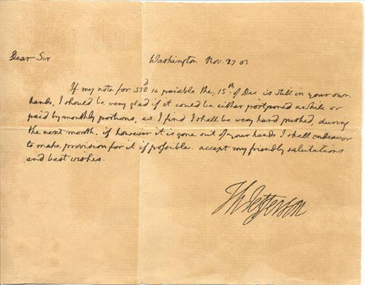 Dear Sir Washington Nov. 27 03
If my note for 558 D paiable the 15th of Dec is still in your own
hands, I should be very glad if it could be either postponed awhile or
paid by monthly portions, as I find I shall be very hard pushed, during
the next month. if however it is gone out of your hands I shall endeavor
to make provision for it if possible. accept my friendly salutations
and best wishes.
Th Jefferson